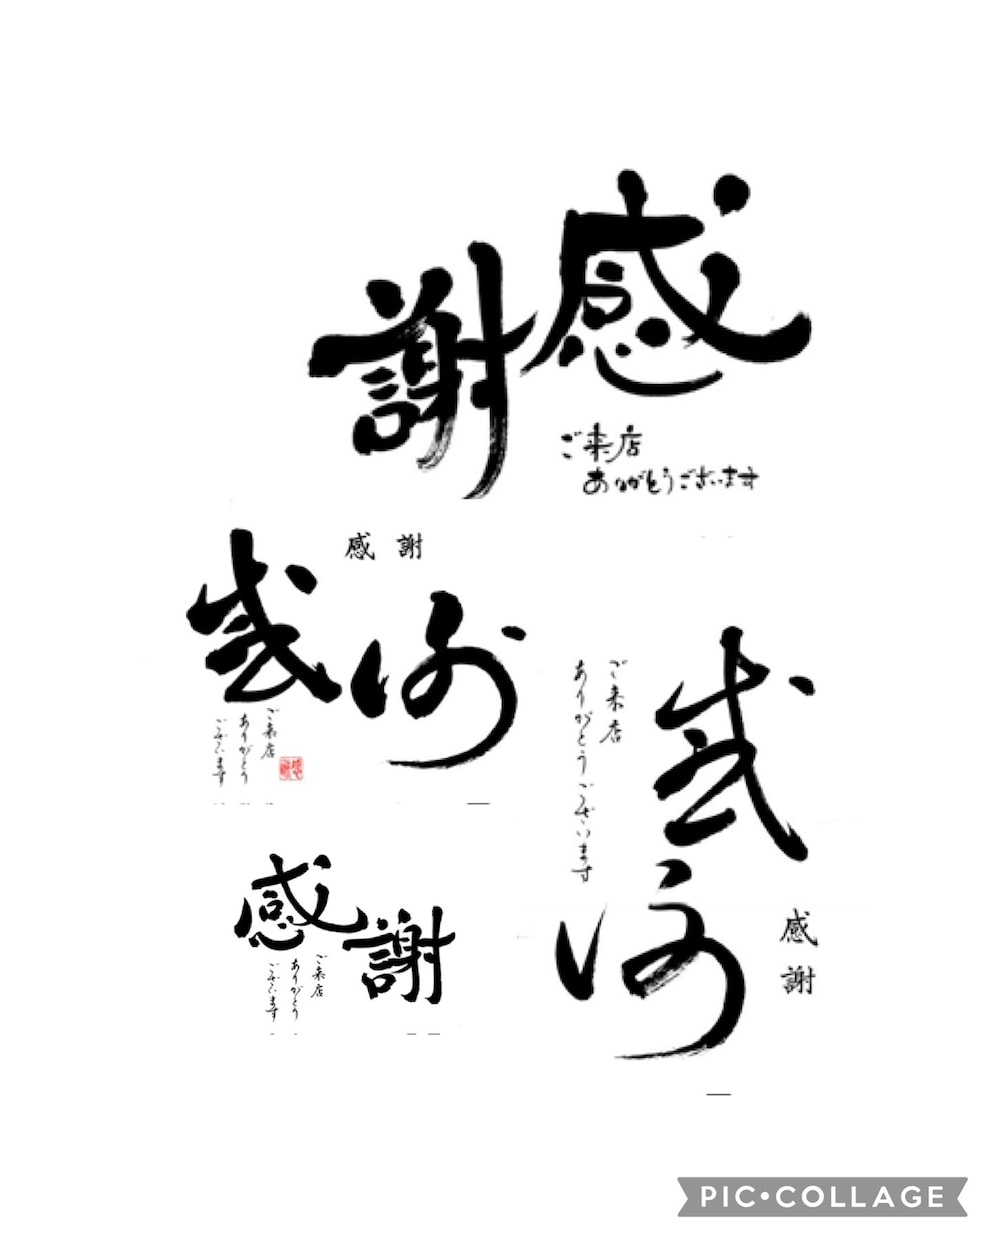 感謝
ご来店
ありがとうございます
感謝
感謝
ご来店
ありがとう
ございます
感謝
ご来店
ありがとうございます
感謝
感謝
ご来店
ありがとう
ございます
PIC•COLLAGE